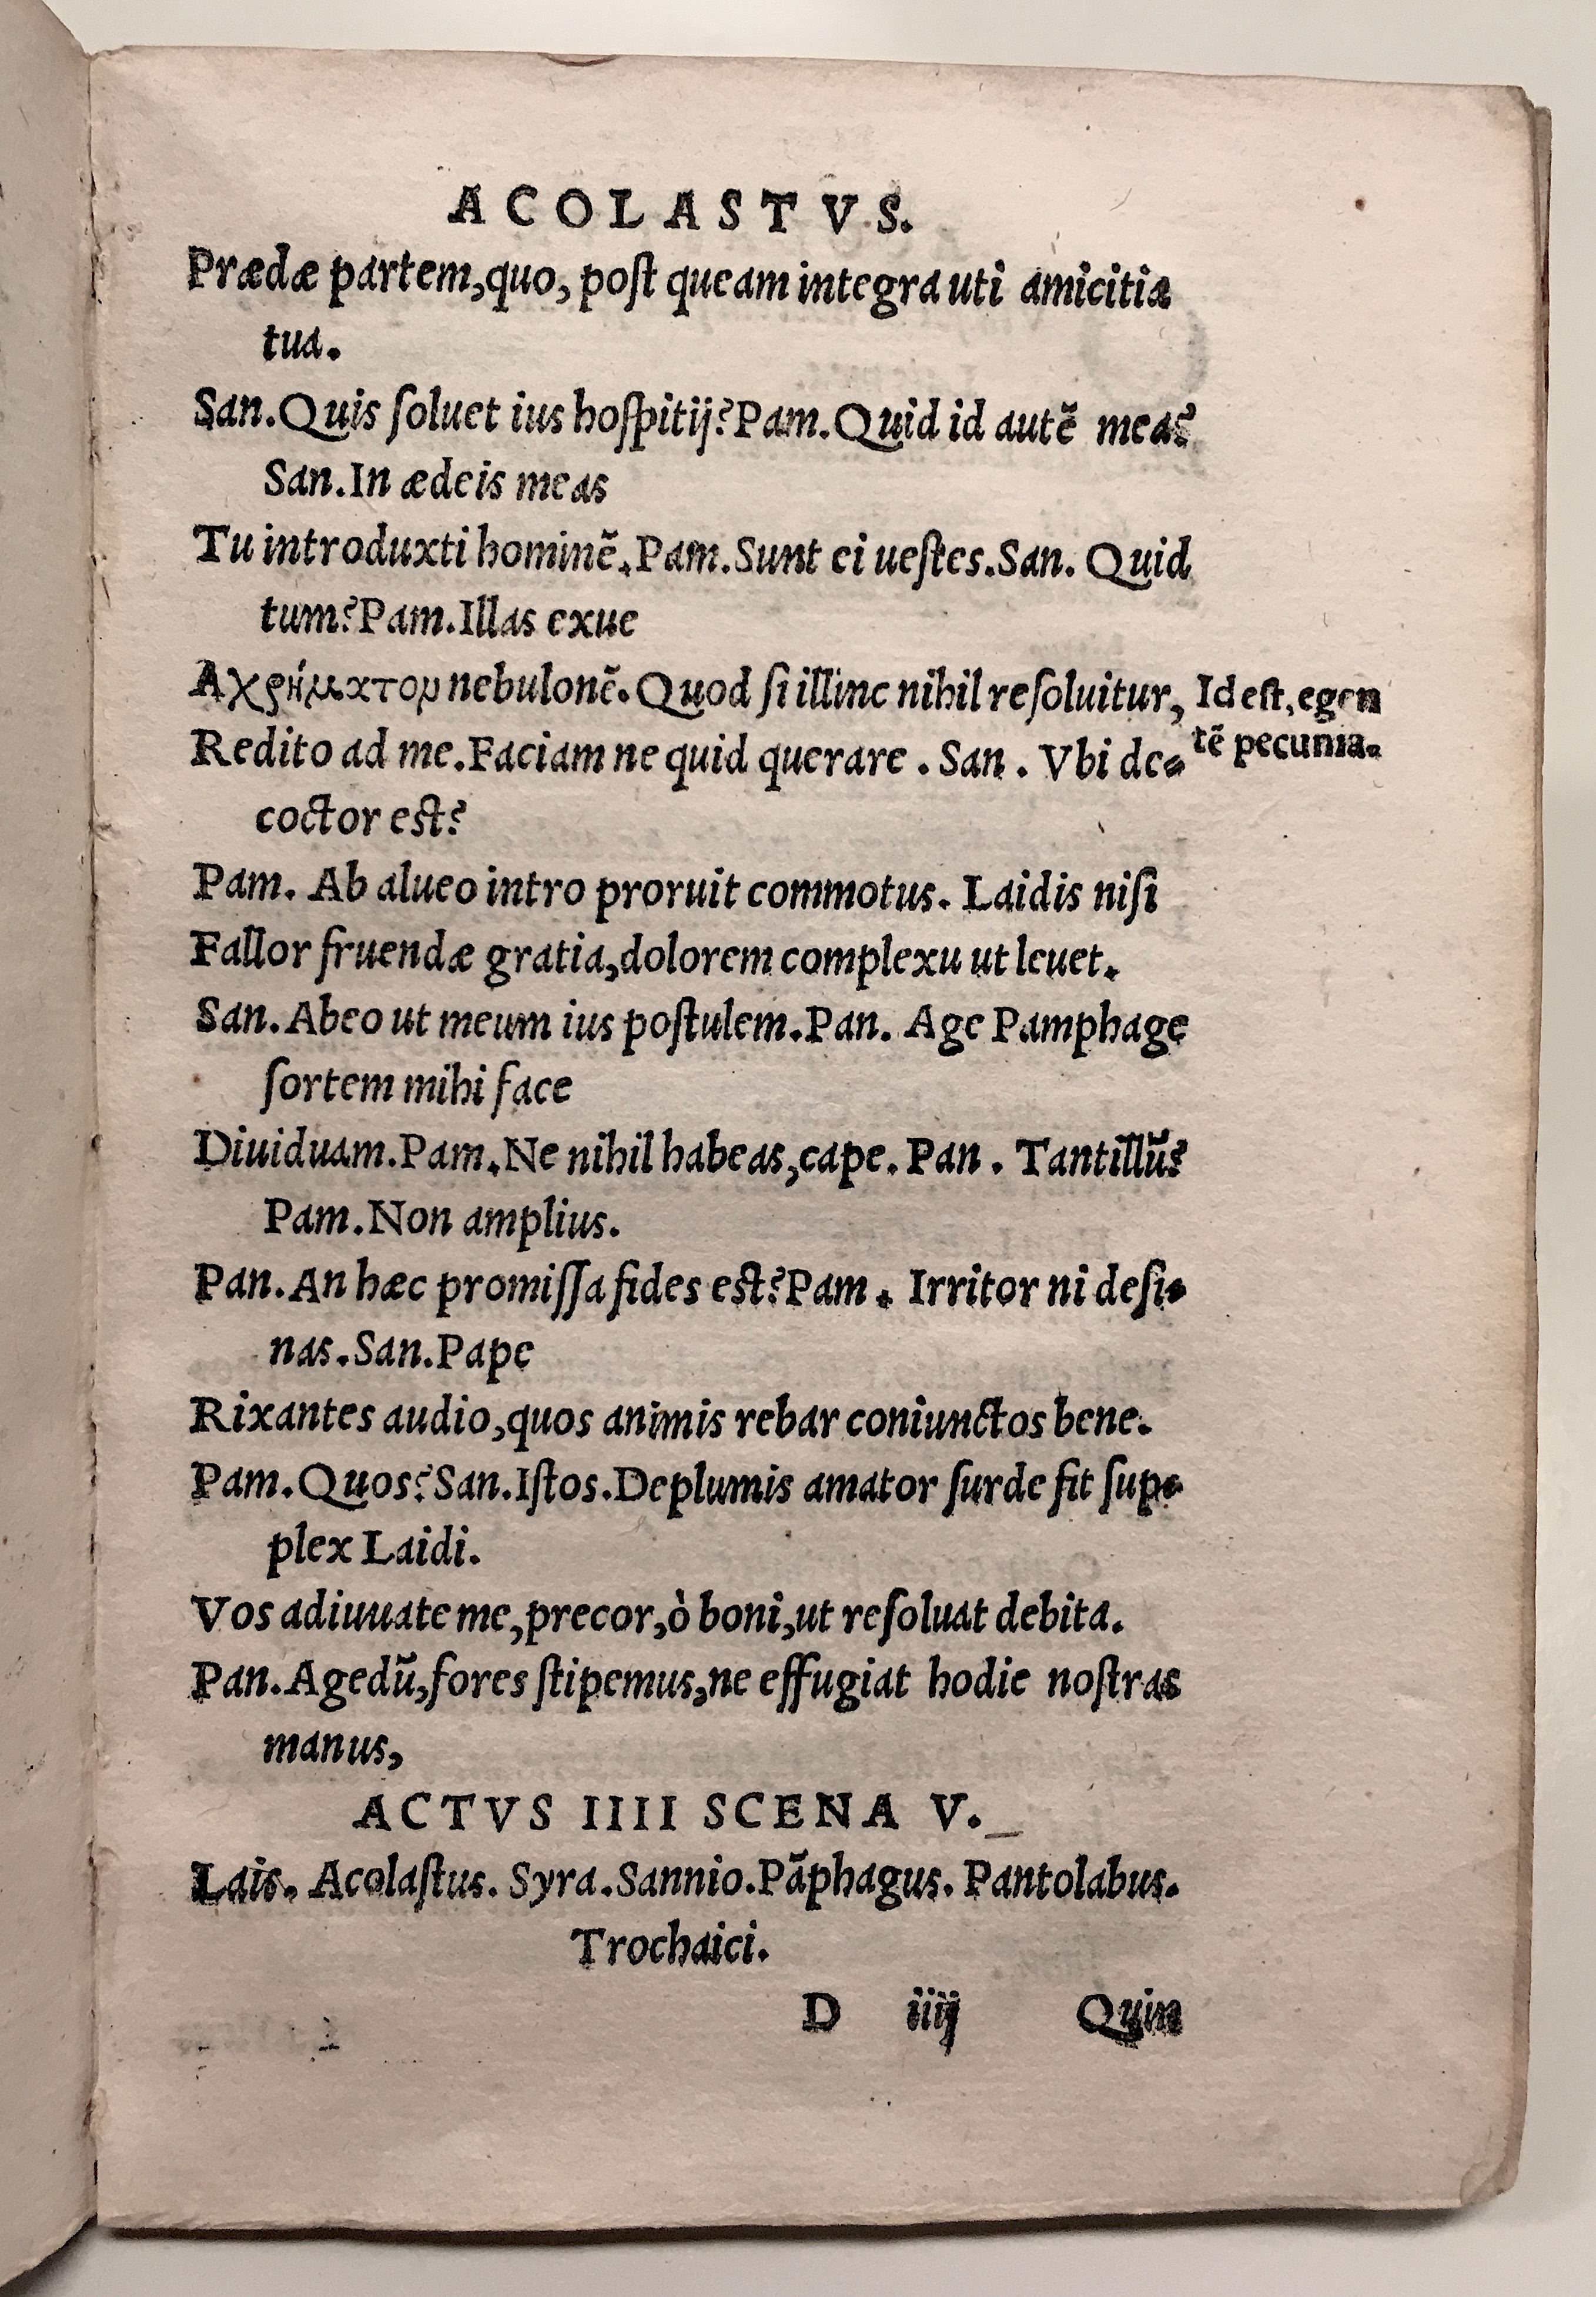 ACOLASTVS.
Prædæ partem,quo, post queam integra uti amicitia
tua.
San.Quis soluet ius hospitij?Pam.Quid id autẽ mea?
San.In ædeis meas
Tu introduxti hominẽ.Pam.Sunt ei uestes.San. Quid
tum?Pam.Illas exue
Αχρήματον nebulonẽ.Quod si illinc nihil resoluitur,
Id est, egen
tẽ pecunia.
Redito ad me.Faciam ne quid querare . San . Vbi de-
coctor est?
Pam. Ab alueo intro proruit commotus. Laidis nisi
Fallor fruendæ gratia,dolorem complexu ut leuet.
San.Abeo ut meum ius postulem.Pan. Age Pamphage
sortem mihi face
Diuiduam.Pam.Ne nihil habeas,cape.Pan . Tantillũ?
Pam.Non amplius.
Pan.An hæc promissa fides est?Pam . Irritor ni desi-
nas.San.Pape
Rixantes audio,quos animis rebar coniunctos bene.
Pam.Quos?San.Istos.Deplumis amator surde fit sup-
plex Laidi.
Vos adiuuate me,precor,ò boni,ut resoluat debita.
Pan.Agedũ,fores stipemus,ne effugiat hodie nostras
manus,
ACTVS IIII SCENA V.
Lais. Acolastus. Syra.Sannio.Pãphagus. Pantolabus.
Trochaici.
D iiij Quin